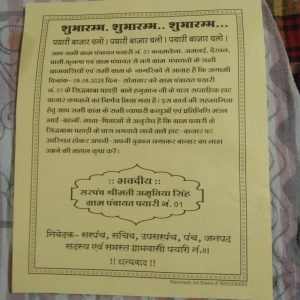 शुभारम्भ. शुभारम्भ.. शुभारम्भ...
पयारी बाजार चलो। पयारी बाजार चलो। पयारी बाजार चलो।
आप सभी ग्राम पंचायत पयारी नं. 01
पाली, फुनगा एवं ग्राम पंचायत से लगे ग्राम पंचायतो के सभी
ग्रामवासियों एवं सभी ग्राम के नागरिको से आग्रह है कि आगामी
दिनांक- 09.06.2025 दिन - सोमवार को ग्राम पंचायत पयारी
नं. 01 के सिद्धबाबा पहाड़ी वाले हनुमान जी के पास साप्ताहिक हाट
बाजार लगवाने का निर्णय लिया गया है। इस कार्य की सहभागिता
हेतु आप सभी ग्राम के सभी व्यापारी बन्धुओं एवं प्रतिनिधि मंडल
भाई-बहनों, माता-पिताओं से अनुरोध है कि ग्राम पयारी के
सिद्धबाबा पहाड़ी के पास लगवाये जाने वाले हाट-बाजार पर
उपस्थित होकर अपनी-अपनी दुकान लगाकर बाजार का लाभ
उठाने की महान कृपा करें।
भवदीय :
सरपंच श्रीमती अमृतिया सिंह
ग्राम पंचायत पयारी नं. 01
निवेदक- सरपंच, सचिव, उपसरपंच, पंच, जनपद
सदस्य एवं समस्त ग्रामवासी पयारी नं.01
!! धन्यवाद !!